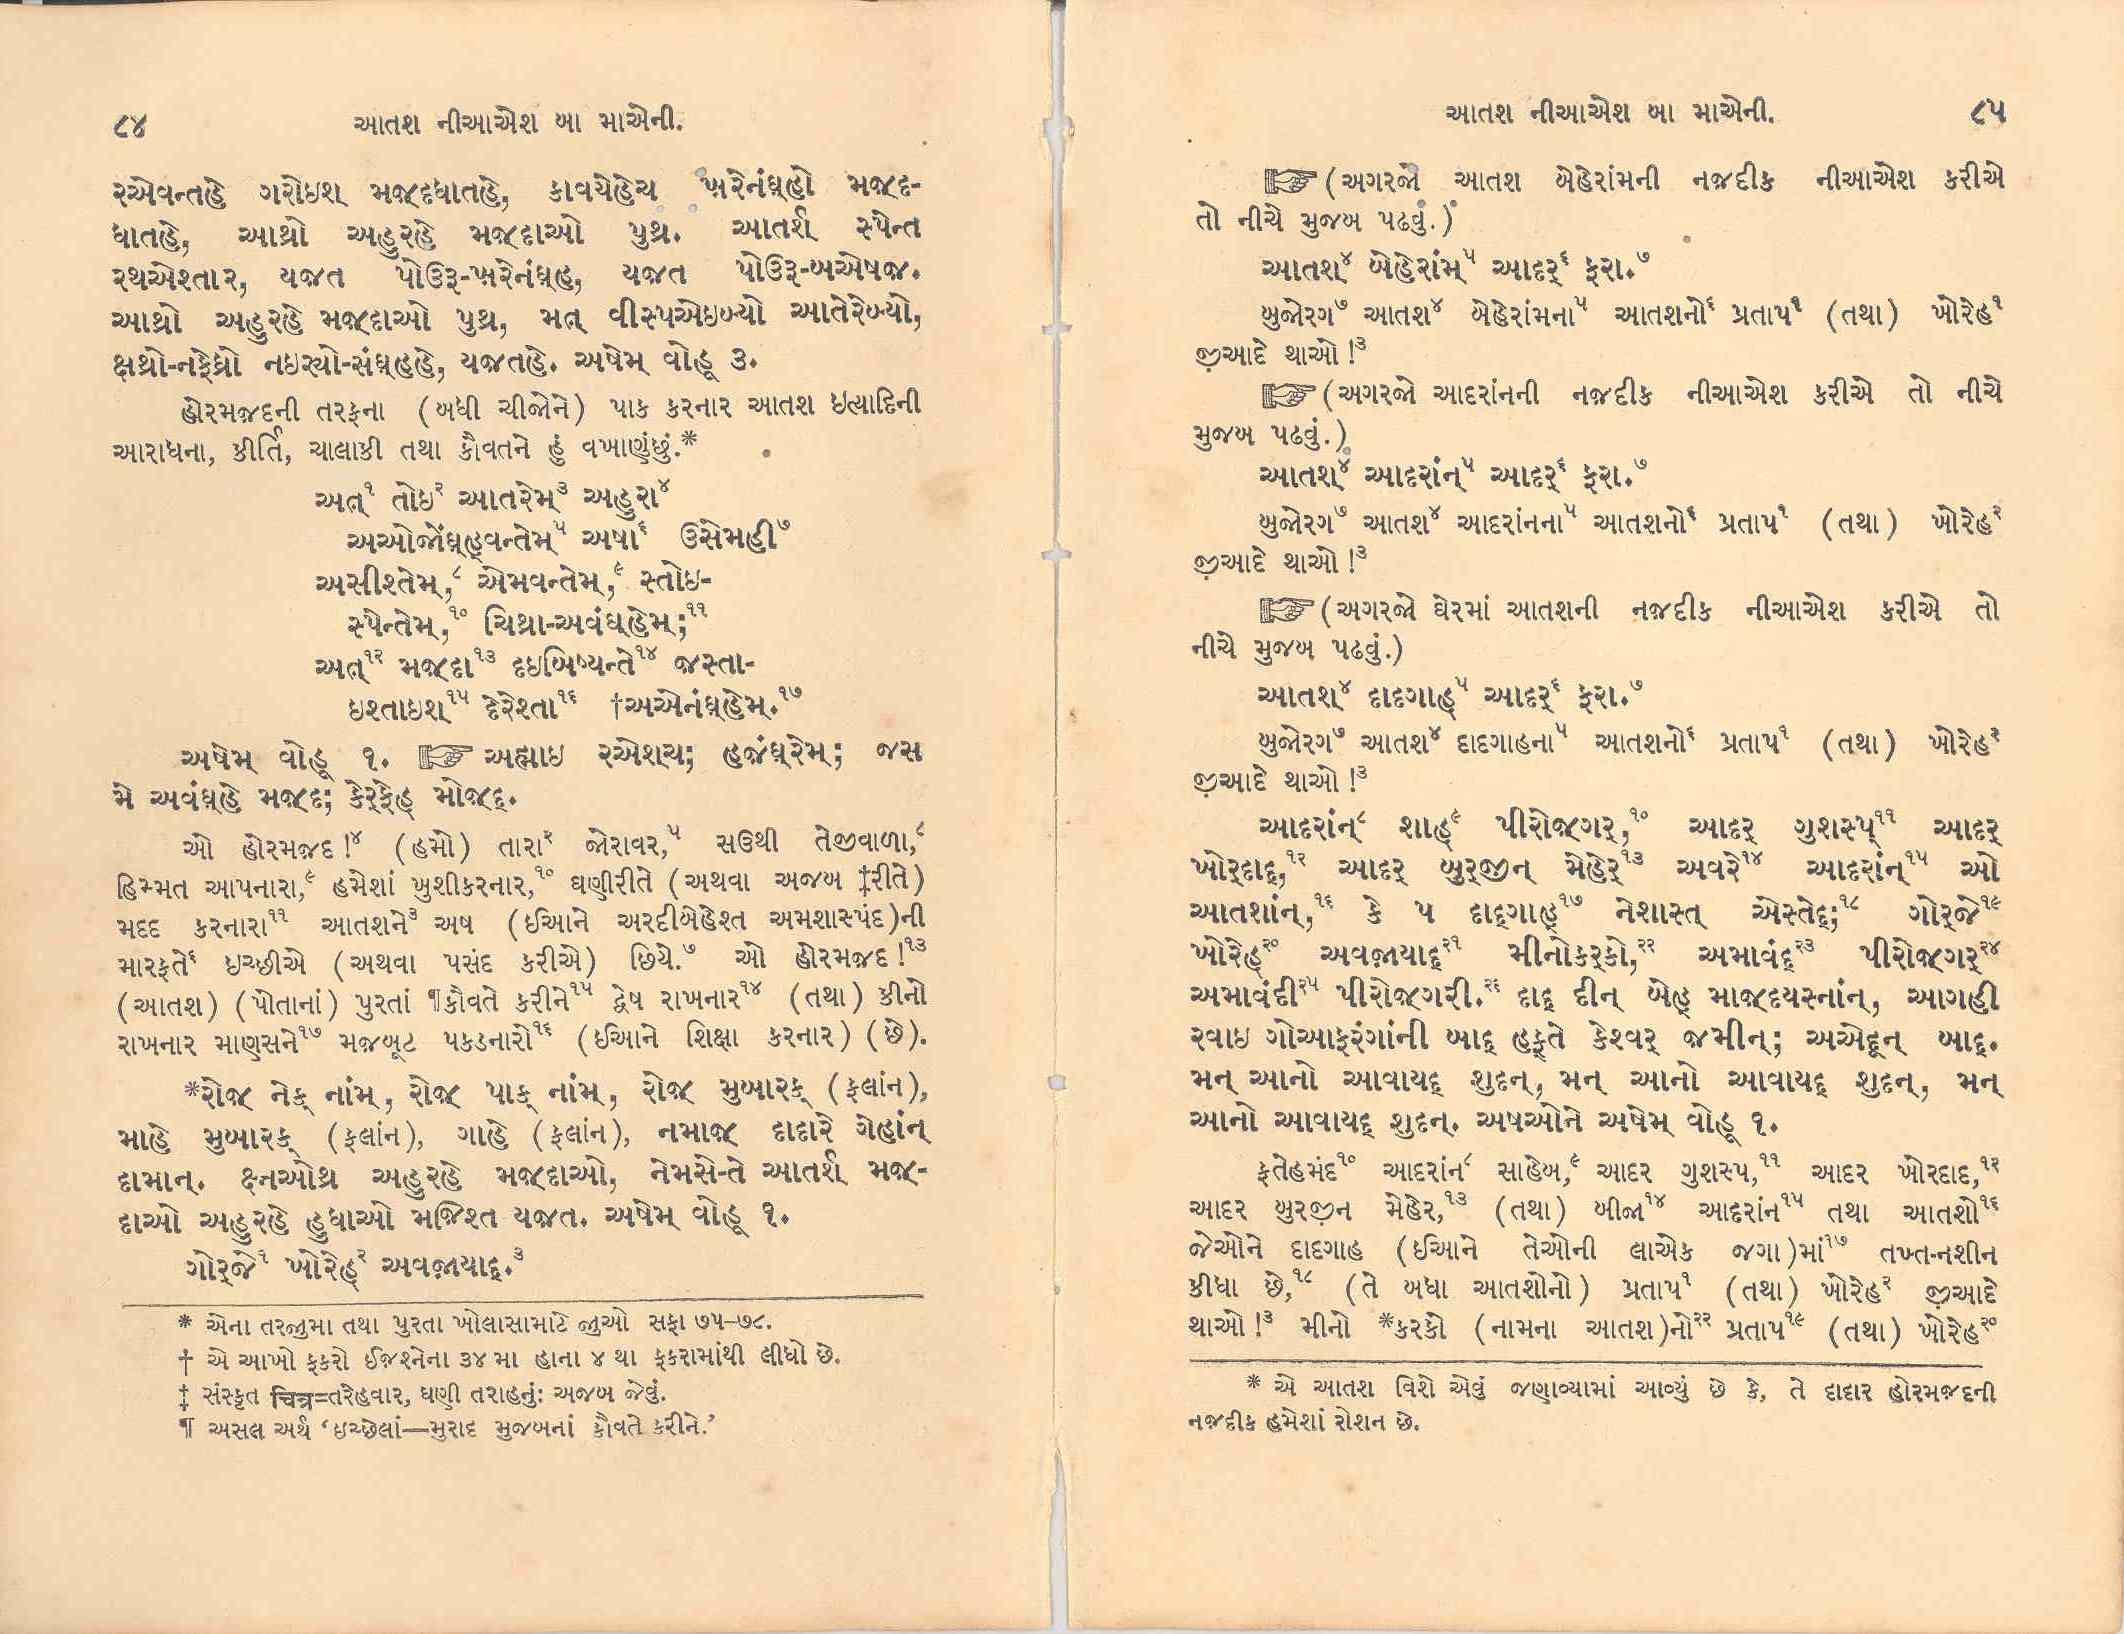 ૮૪ આતશ નીઆએશ બા માએની.
રએવન્તહે ગરોઇશ્ મજ઼્દધાતહે, કાવયેહેચ ખ઼રેનંઘ્હો મજ઼્દ-
ધાતહે, આથ્રો અહુરહે મજ઼્દાઓ પુથ્ર. આતર્શ સ્પેન્ત
રથએશ્તાર, યજ઼ત પોઉરૂ-ખ઼રેનંઘ્હ, યજ઼ત પોઉરૂ-બએષજ઼.
આથ્રો અહુરહે મજ઼્દાઓ પુથ્ર, મત્ વીસ્પએઇબ્યો આતેરેબ્યો,
ક્ષથ્રો-નફેધ્રો નઇર્યો-સંઘ્હહે, યજ઼તહે. અષેમ્ વોહૂ ૩.
હોરમજ઼દની તરફના (બધી ચીજોને) પાક કરનાર આતશ ઇત્યાદિની
આરાધના, કીર્તિ, ચાલાકી તથા કૌવતને હું વખાણુંછું.*
અત્૧ તોઇ૨ આતરેમ્૩ અહુરા૪
અઓજોંઘ્હ્વન્તેમ્૫ અષા૬ ઉસેમહી૭
અસીશ્તેમ્,૮ એમવન્તેમ્,૯ સ્તોઇ-
સ્પેન્તેમ્,૧૦ ચિથ્રા-અવંઘ્હેમ્;૧૧
અત્૧૨ મજ઼્દા૧૩ દઇબિષ્યન્તે૧૪ જ઼સ્તા-
ઇશ્તાઇશ્૧૫ દેરેશ્તા૧૬ †અએનંઘ્હેમ્.૧૭
અષેમ્ વોહૂ ૧. ☞ અહ્માઇ રએશ્ચ; હજ઼ંઘ્રેમ્; જસ
મે અવંઘ્હે મજ઼્દ; કેર્ફેહ્ મોજ઼્દ્.
ઓ હોરમજ઼દ!૪ (હમો) તારા૨ જોરાવર,૫ સઉથી તેજીવાળા,૮
હિમ્મત આપનારા,૯ હમેશાં ખુશીકરનાર,૧૦ ઘણીરીતે (અથવા અજબ ‡રીતે)
મદદ કરનારા૧૧ આતશને૩ અષ (ઈઆને અરદીબેહેશ્ત અમશાસ્પંદ)ની
મારફતે૬ ઇચ્છીએ (અથવા પસંદ કરીએ) છિયે.૭ ઓ હોરમજ઼દ!૧૩
(આતશ) (પોતાનાં) પુરતાં ¶કૌવતે કરીને૧૫ દ્વેષ રાખનાર૧૪ (તથા) કીનો
રાખનાર માણસને૧૭ મજબૂટ પકડનારો૧૬ (ઈઆને શિક્ષા કરનાર) (છે).
*રોજ઼ નેક્ નાંમ્, રોજ઼ પાક્ નાંમ્, રોજ઼ મુબારક્ (ફલાંન),
માહે મુબારક્ (ફલાંન), ગાહે (ફલાંન), નમાજ઼ દાદારે ગેહાંન્
દામાન્. ક્ષ્નઓથ્ર અહુરહે મજ઼્દાઓ, નેમસે-તે આતર્શ મજ઼્-
દાઓ અહુરહે હુધાઓ મજ઼િશ્ત યજ઼ત. અષેમ્ વોહૂ ૧.
ગોર્જે૧ ખોરેહ્૨ અવજ઼ાયાદ્.૩
* એના તરજુમા તથા પુરતા ખોલાસામાટે જુઓ સફા ૭૫–૭૮.
† એ આખો ફકરો ઈજ઼શ્નેના ૩૪ મા હાના ૪ થા ફકરામાંથી લીધો છે.
‡ સંસ્કૃત चित्र=તરેહવાર, ઘણી તરાહનું: અજબ જેવું.
¶ અસલ અર્થ ‘ઇચ્છેલાં—મુરાદ મુજબનાં કૌવતે કરીને.’
આતશ નીઆએશ બા માએની. ૮૫
☞ (અગરજો આતશ બેહેરાંમની નજ઼દીક નીઆએશ કરીએ
તો નીચે મુજબ પઢવું.)
આતશ્૪ બેહેરાંમ્૫ આદર્૬ ફ્રા.૭
બુજોરગ૭ આતશ૪ બેહેરાંમના૫ આતશનો૬ પ્રતાપ૧ (તથા) ખોરેહ૧
જ઼ીઆદે થાઓ!૩
☞ (અગરજો આદરાંનની નજ઼દીક નીઆએશ કરીએ તો નીચે
મુજબ પઢવું.)
આતશ્૪ આદરાંન્૫ આદર્૬ ફ્રા.૭
બુજોરગ૭ આતશ૪ આદરાંનના૫ આતશનો૬ પ્રતાપ૧ (તથા) ખોરેહ૨
જ઼ીઆદે થાઓ!૩
☞ (અગરજો ઘેરમાં આતશની નજ઼દીક નીઆએશ કરીએ તો
નીચે મુજબ પઢવું.)
આતશ્૪ દાદગાહ્૫ આદર્૬ ફ્રા.૭
બુજોરગ૭ આતશ૪ દાદગાહના૫ આતશનો૬ પ્રતાપ૧ (તથા) ખોરેહ૨
જ઼ીઆદે થાઓ!૩
આદરાંન્૮ શાહ્૯ પીરોજ઼્ગર્,૧૦ આદર્ ગુશસ્પ્૧૧ આદર્
ખોર્દાદ્,૧૨ આદર્ બુર્જીન્ મેહેર્૧૩ અવરે૧૪ આદરાંન્૧૫ ઓ
આતશાંન્,૧૬ કે પ દાદ્ગાહ્૧૭ નેશાસ્ત્ એસ્તેદ્;૧૮ ગોર્જે૧૯
ખોરેહ્૨૦ અવજ઼ાયાદ્૨૧ મીનોકર્કો,૨૨ અમાવંદ્૨૩ પીરોજ઼્ગર્૨૪
અમાવંદી૨૫ પીરોજ઼્ગરી.૨૬ દાદ્ દીન્ બેહ્ માજ઼્દયસ્નાંન્, આગહી
રવાઇ ગોઆફરંગાંની બાદ્ હફ્તે કેશ્વર્ જ઼મીન્; અએદૂન્ બાદ્.
મન્ આનો આવાયદ્ શુદન્, મન્ આનો આવાયદ્ શુદન્, મન્
આનો આવાયદ્ શુદન્. અષઓને અષેમ્ વોહૂ ૧.
ફતેહમંદ૧૦ આદરાંન૮ સાહેબ,૯ આદર ગુશસ્પ,૧૧ આદર ખોરદાદ,૧૨
આદર બુરજ઼ીન મેહેર,૧૩ (તથા) બીજા૧૪ આદરાંન૧૫ તથા આતશો૧૬
જેઓને દાદગાહ (ઈઆને તેઓની લાએક જગા)માં૧૭ તખ્ત-નશીન
કીધા છે,૧૮ (તે બધા આતશોનો) પ્રતાપ૧ (તથા) ખોરેહ૨ જ઼ીઆદે
થાઓ!૩ મીનો *કરકો (નામના આતશ)નો૨૨ પ્રતાપ૧૯ (તથા) ખોરેહ૨૦
* એ આતશ વિશે એવું જણાવ્યામાં આવ્યું છે કે, તે દાદાર હોરમજ઼દની
નજ઼દીક હમેશાં રોશન છે.